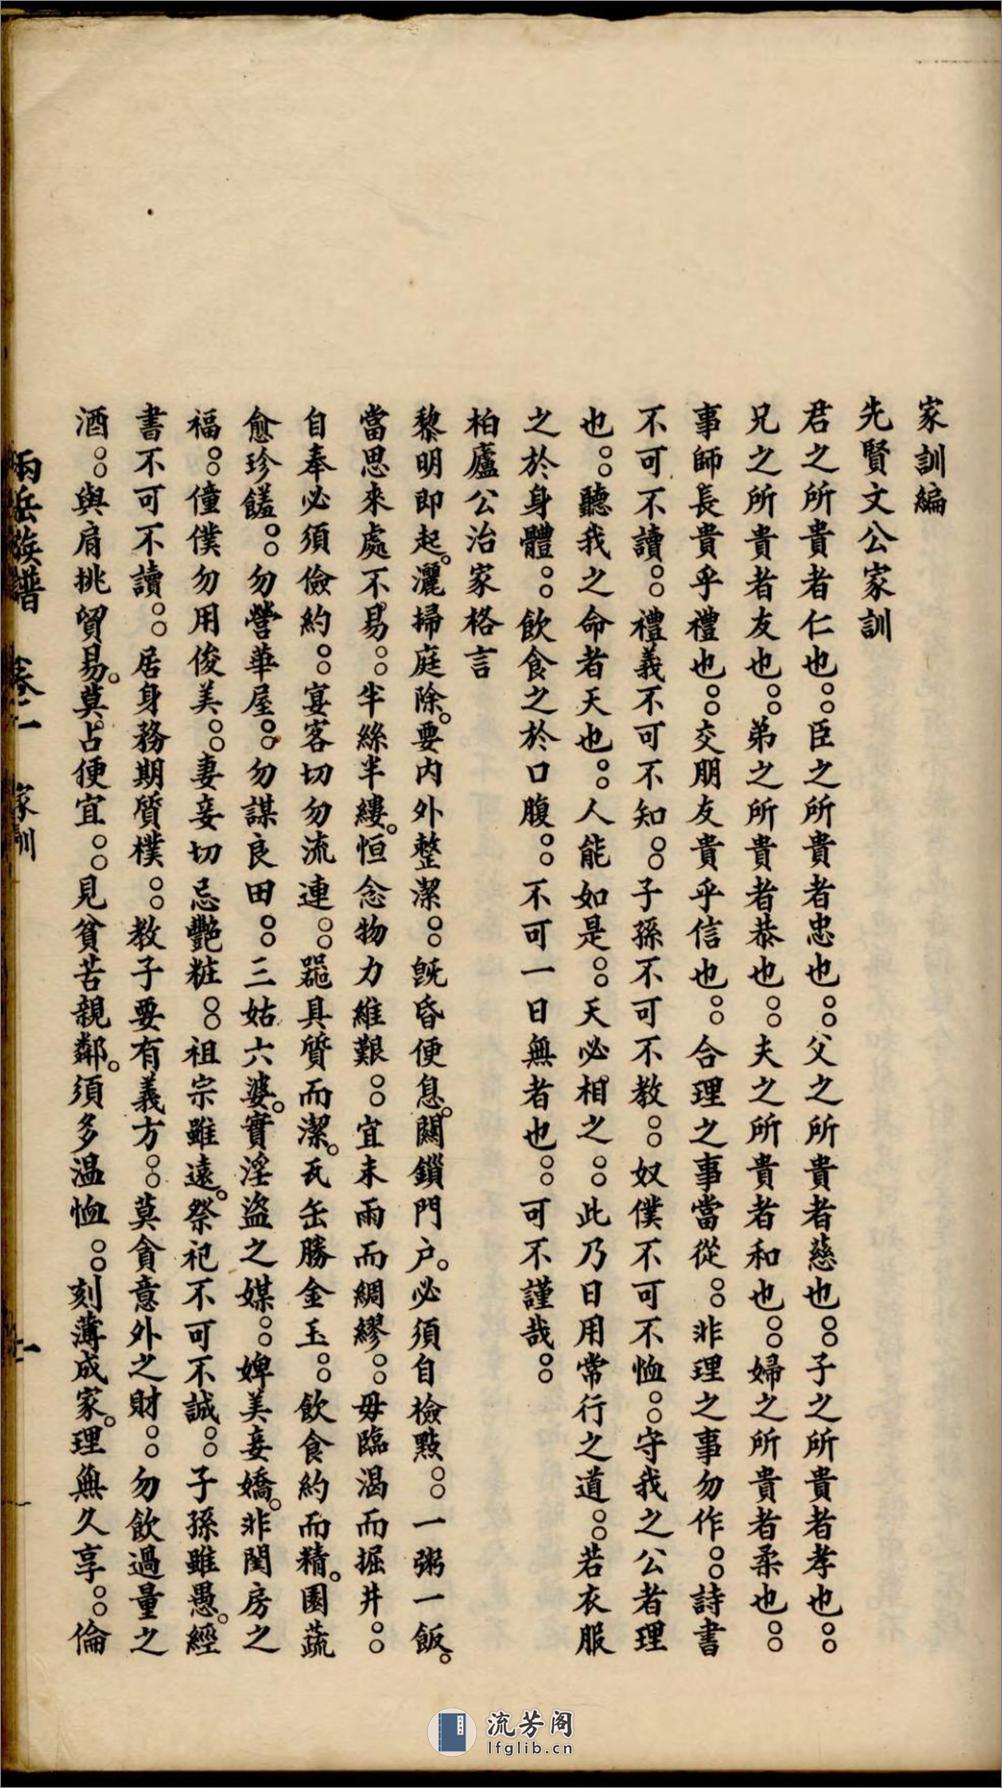 家訓編
先賢文公家訓
君之所貴者仁也。臣之所貴者忠也。父之所貴者慈也。子之所貴者孝也。
兄之所貴者友也。弟之所貴者恭也。夫之所貴者和也。婦之所貴者柔也。
事師長貴乎禮也。交朋友貴乎信也。合理之事當從。非理之事勿作。詩書
不可不讀。禮義不可不知。子孫不可不教。奴僕不可不恤。守我之公者理
也。聽我之命者天也。人能如是。天必相之。此乃日用常行之道。若衣服
之於身體。飲食之於口腹。不可一日無者也。可不謹哉。
柏廬公治家格言
黎明即起。灑掃庭除。要內外整潔。旣昏便息。關鎖門户。必須自檢點。一粥一飯。
當思來處不易。半絲半縷。恒念物力維艱。宜未雨而綢繆。毋臨渴而掘井。
自奉必須儉約。宴客切勿流連。器具質而潔。瓦缶勝金玉。飲食約而精。園蔬
愈珍饈。勿營華屋。勿謀良田。三姑六婆。實淫盜之媒。婢美妾嬌。非閨房之
福。僮僕勿用俊美。妻妾切忌艷粧。祖宗雖遠。祭祀不可不誠。子孫雖愚。經
書不可不讀。居身務期質樸。教子要有義方。莫貪意外之財。勿飲過量之
酒。與肩挑貿易。莫占便宜。見貧苦親鄰。須多温恤。刻薄成家。理無久享。倫
兩岳族譜 卷二 家訓 一
流芳阁
lfglib.cn